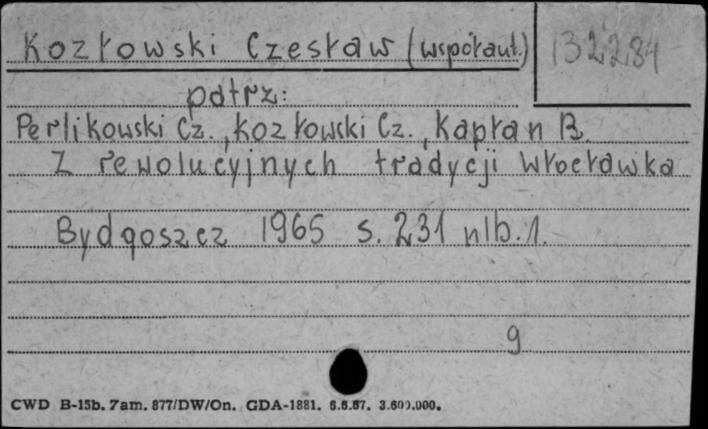 Kozłowski Czesław (współaut.)
132284
patrz:
Perlikowski Cz., Kozłowski Cz., Kapłan B.
Z rewolucyjnych tradycji Włocławka
Bydgoszcz 1965 s. 231 nlb. 1.
9
CWD B-15b. Zam. 877/DW/On. GDA-1881. 6.6.67. 3.600.000.